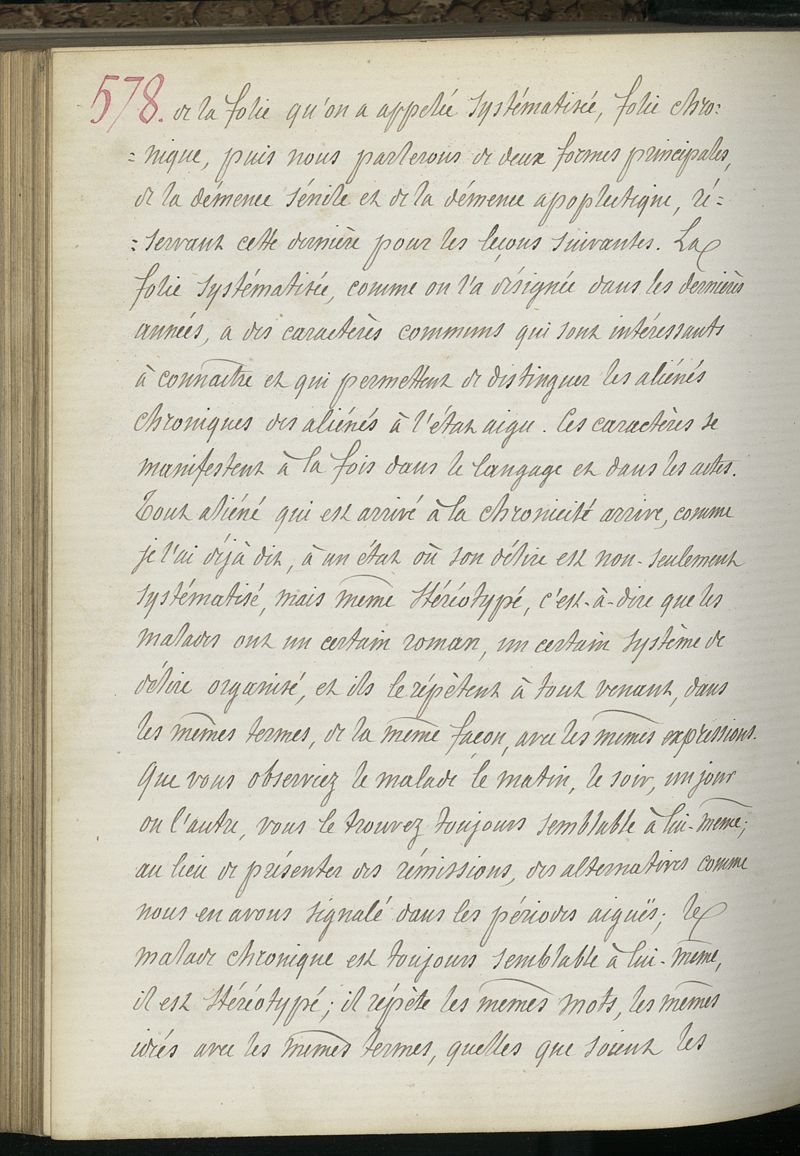 578. de la folie qu'on a appelée systématisée, folie chro=
= nique, puis nous parlerons de deux formes principales,
de la démence sénile et de la démence apoplectique, ré=
= servant cette dernière pour les leçons suivantes. La
folie systématisée, comme on l'a désignée dans les dernières
années, a des caractères communs qui sont intéressants
à connaître et qui permettent de distinguer les aliénés
chroniques des aliénés à l'état aigu. Ces caractères se
manifestent à la fois dans le langage et dans les actes.
Tout aliéné qui est arrivé à la chronicité arrive, comme
je l'ai déjà dit, à un état où son délire est non-seulement
systématisé, mais même stéréotypé, c'est-à-dire que les
malades ont un certain roman, un certain système de
délire organisé, et ils le répètent à tout venant, dans
les mêmes termes, de la même façon, avec les mêmes expressions.
Que vous observiez le malade le matin, le soir, un jour
ou l'autre, vous le trouvez toujours semblable à lui-même;
au lieu de présenter des rémissions, des alternatives comme
nous en avons signalé dans les périodes aiguës; le
malade chronique est toujours semblable à lui-même,
il est stéréotypé; il répète les mêmes mots, les mêmes
idées avec les mêmes termes, quelles que soient les